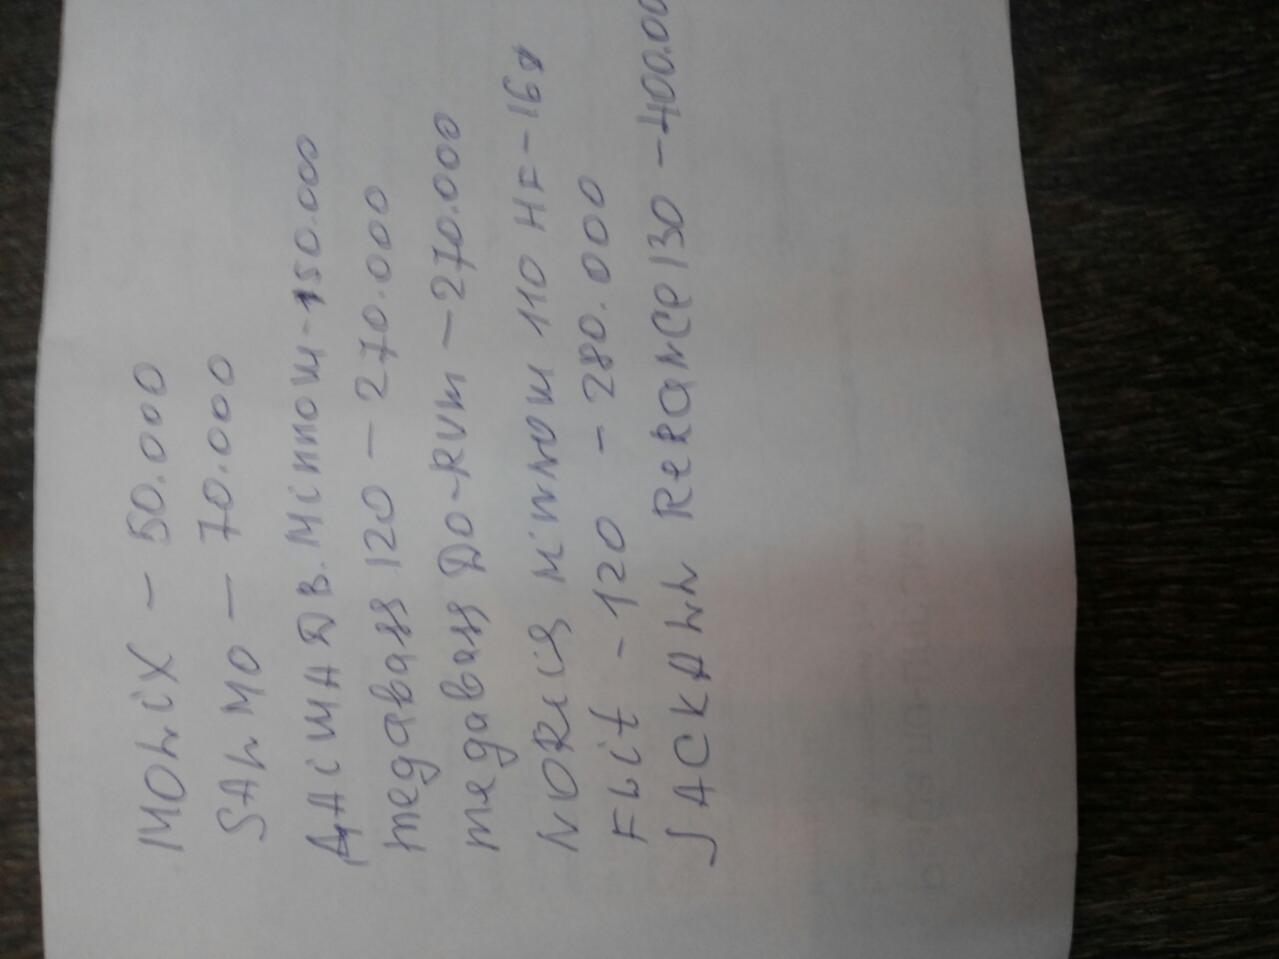 MOLiX - 50.000
SALMO - 70.000
DAiWA DB. Minnow - 150.000
megabass 120 - 270.000
megabass DO-RUM - 270.000
NORieS MiNNOW 110 HF - 16$
FLit - 120 - 280.000
JACKALL ReRANCe 130 - 400.00